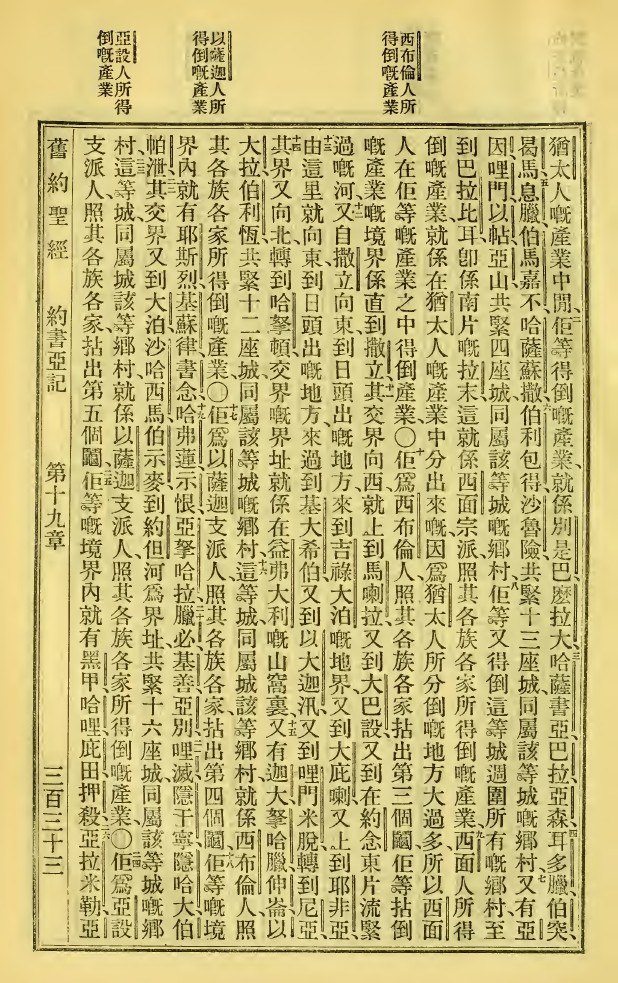 西布倫人所
得倒嘅產業
以薩迦人所
得倒嘅產業
亞設人所得
倒嘅產業
猶太人嘅產業中間佢等得倒嘅產業就係別是巴麼拉大哈薩書亞巴拉亞森耳多臘伯突
曷馬息臘伯馬嘉不哈薩蘇撒伯利包得沙魯險共緊十三座城同屬該等城嘅鄉村又有亞
因哩門以帖亞山共緊四座城同屬該等城嘅鄉村佢等又得倒這等城週圍所有嘅鄉村至
到巴拉比耳卽係南片嘅拉末這就係西面宗派照其各族各家所得倒嘅產業西面人所得
倒嘅產業就係在猶太人嘅產業中分出來嘅因爲猶太人所分倒嘅地方大過多所以西面
人在佢等嘅產業之中得倒產業〇佢爲西布倫人照其各族各家拈出第三個鬮佢等拈倒
嘅產業嘅境界係直到撒立其交界向西就上到馬喇拉又到大巴設又到在約念東片流緊
過嘅河又自撒立向東到日頭出嘅地方來到吉祿大泊嘅地界又到大庇喇又上到耶非亞
由這里就向東到日頭出嘅地方來過到基大希伯又到以大迦汛又到哩門米脫轉到尼亞
其界又向北轉到哈拏頓交界嘅界址就係在益弗大利嘅山窩裏又有迦大拏哈臘伸崙以
大拉伯利恆共緊十二座城同屬該等城嘅鄉村這等城同屬城該等鄉村就係西布倫人照
其各族各家所得倒嘅產業〇佢爲以薩迦支派人照其各族各家拈出第四個鬮佢等嘅境
界內就有耶斯烈基蘇律書念哈弗蓮示恨亞拏哈拉臘必基善亞別哩滅隱干寧隱哈大伯
帕泄其交界又到大泊沙哈西馬伯示麥到約但河爲界址共緊十六座城同屬該等城嘅鄉
村這等城同屬城該等鄉村就係以薩迦支派人照其各族各家所得倒嘅產業〇佢爲亞設
支派人照其各族各家拈出第五個鬮佢等嘅境界內就有黑甲哈哩庇田押殺亞拉米勒亞
舊約聖經 約書亞記 第十九章 三百三十三